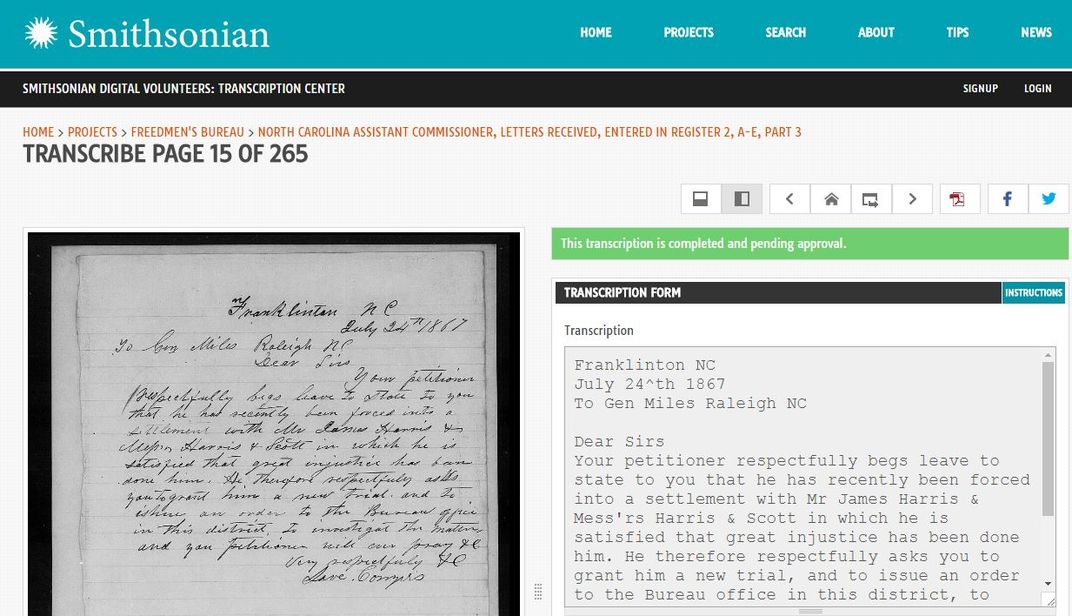 Smithsonian
HOME PROJECTS SEARCH ABOUT TIPS NEWS
SMITHSONIAN DIGITAL VOLUNTEERS: TRANSCRIPTION CENTER
SIGNUP LOGIN
HOME > PROJECTS > FREEDMEN'S BUREAU > NORTH CAROLINA ASSISTANT COMMISSIONER, LETTERS RECEIVED, ENTERED IN REGISTER 2, A-E, PART 3
TRANSCRIBE PAGE 15 OF 265
Franklinton NC
July 24th 1867
To Gen Miles Raleigh NC
Dear Sirs
Your petitioner
respectfully begs leave to state to you
that he has recently been forced into a
settlement with Mr James Harris &
Mess'rs Harris & Scott in which he is
satisfied that great injustice has been
done him. He therefore respectfully asks
you to grant him a new trial and to
issue an order to the Bureau office
in this district, to investigate the matter
and your petitioner will ever pray &c
Very respectfully &c
This transcription is completed and pending approval.
TRANSCRIPTION FORM
INSTRUCTIONS
Transcription
Franklinton NC
July 24^th 1867
To Gen Miles Raleigh NC
Dear Sirs
Your petitioner respectfully begs leave to
state to you that he has recently been forced
into a settlement with Mr James Harris &
Mess'rs Harris & Scott in which he is
satisfied that great injustice has been done
him. He therefore respectfully asks you to
grant him a new trial, and to issue an order
to the Bureau office in this district, to